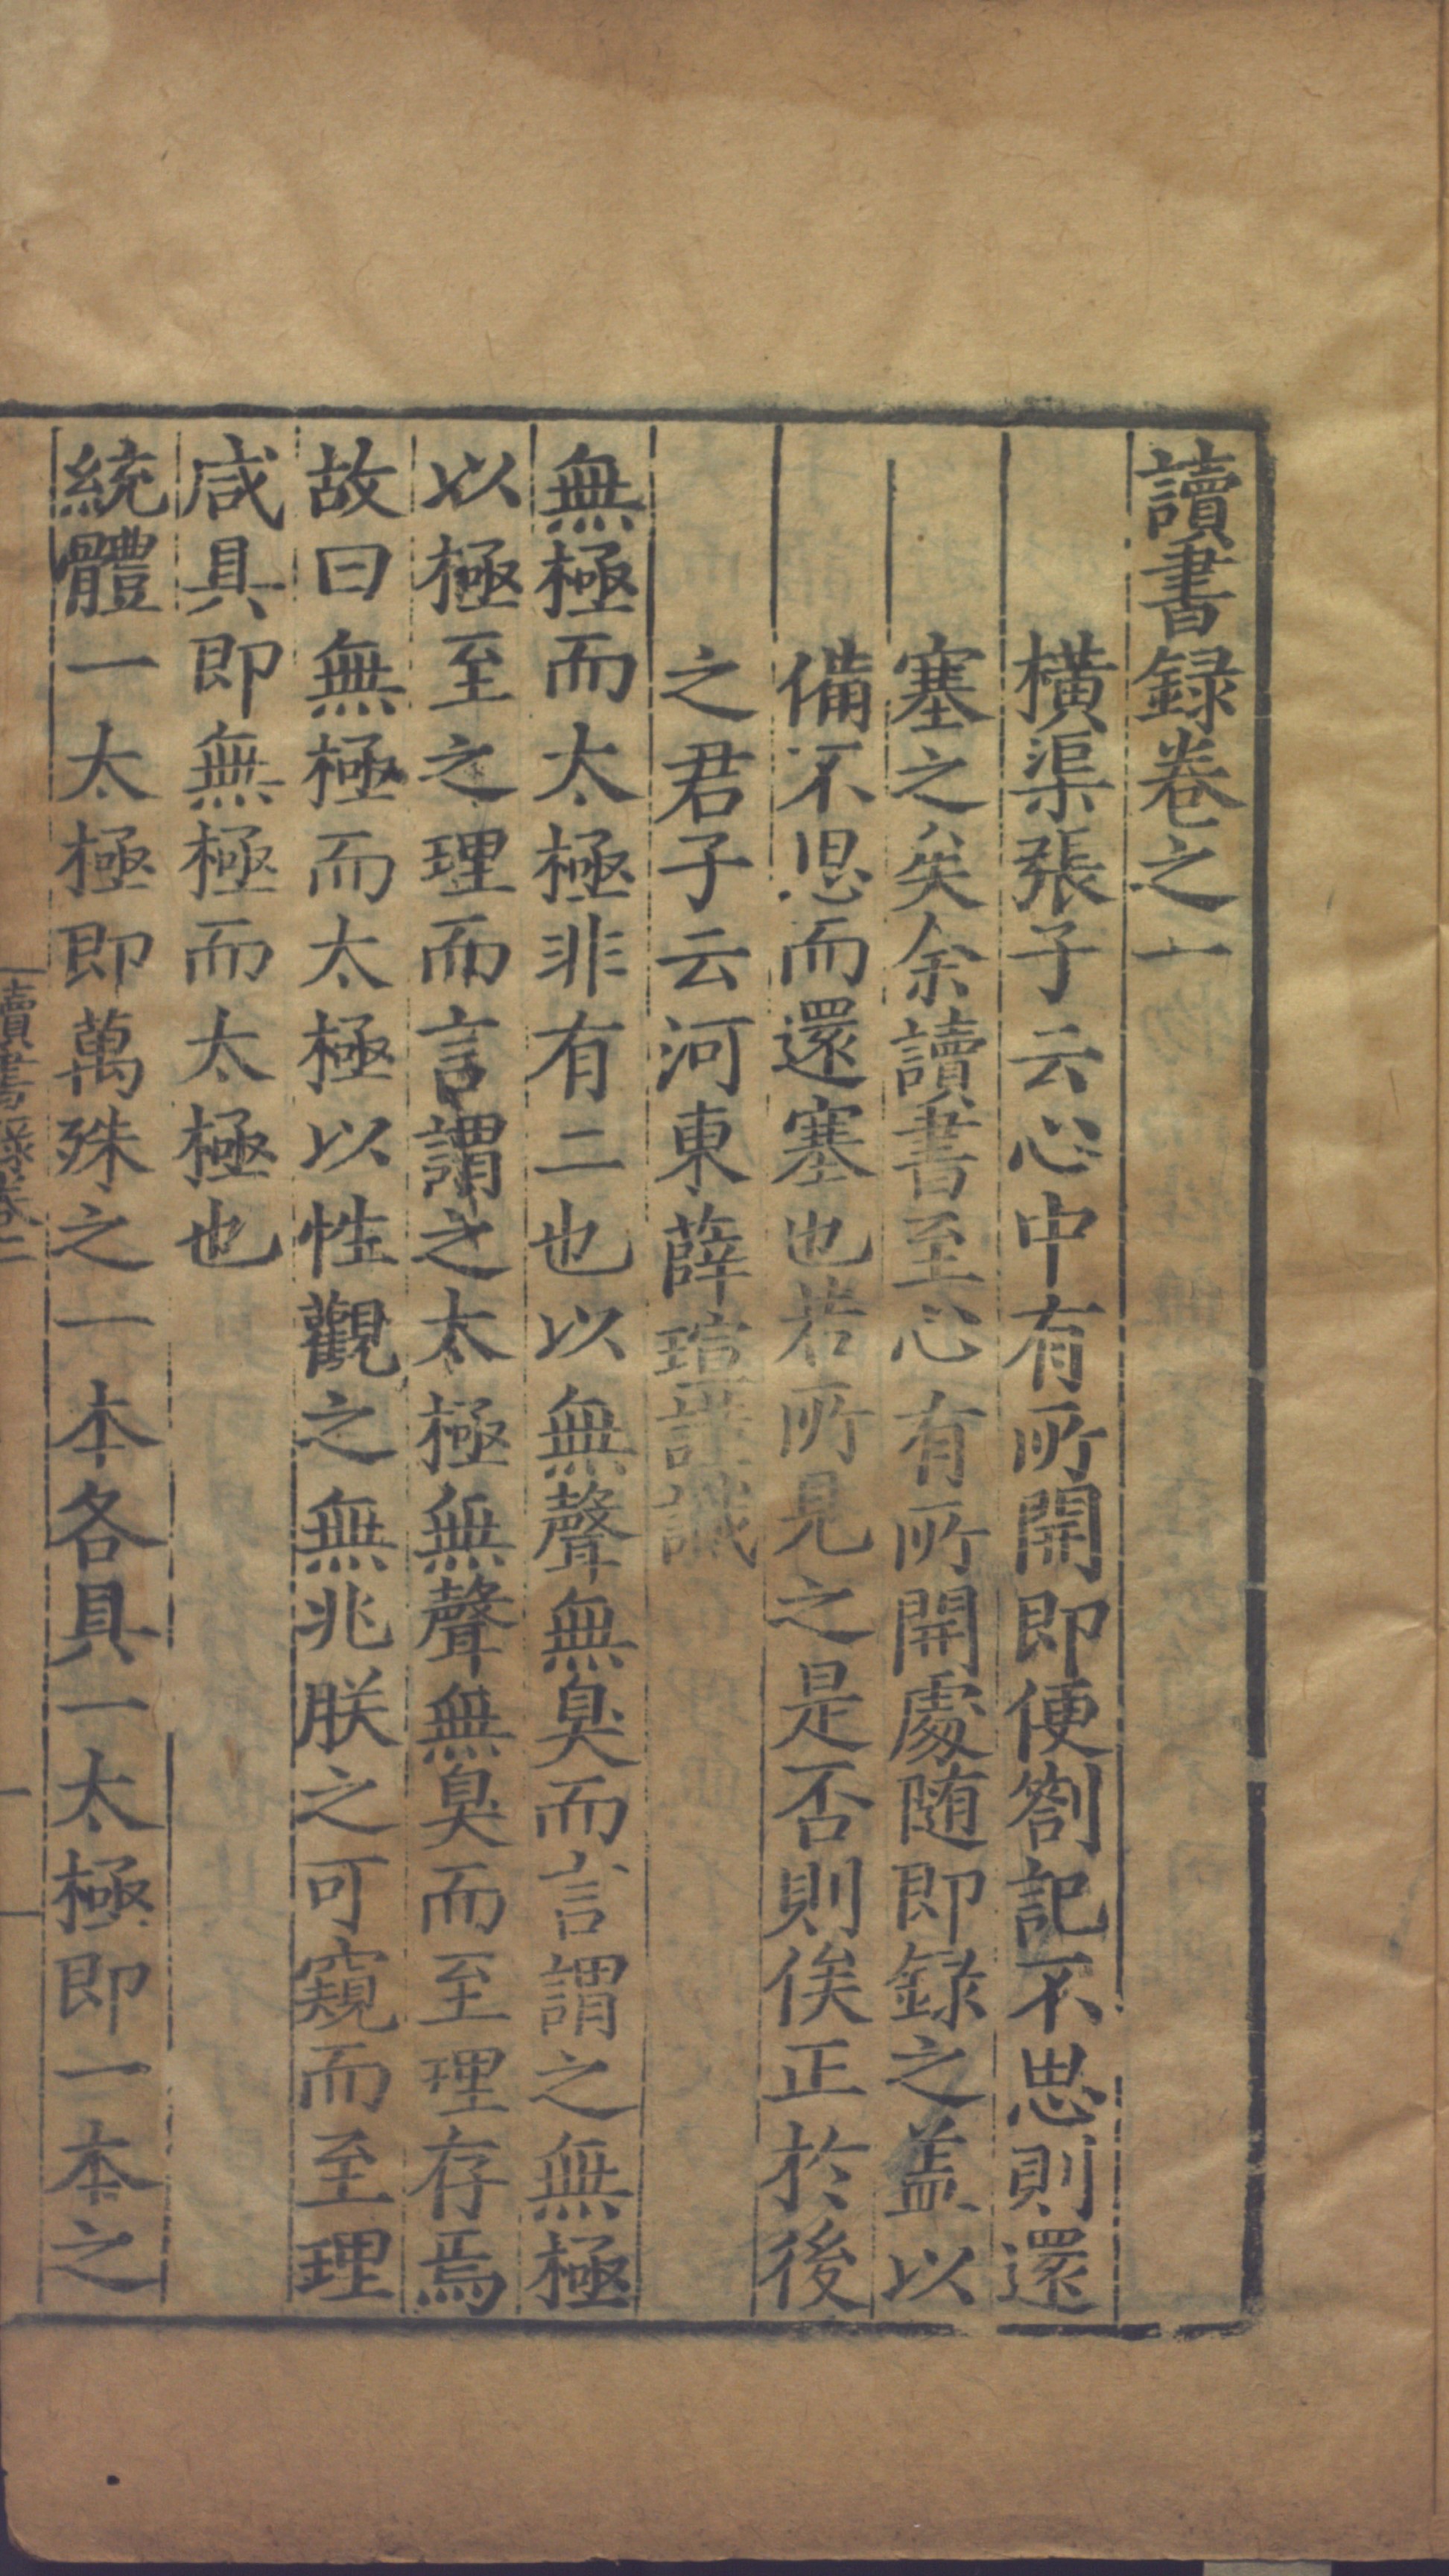 讀書録卷之一
横渠張子云心中有所開即便劄記不思則還
塞之矣余讀書至心有所開處随即録之盖以
備不思而還塞也若所見之是否則俟正於後
之君子云河東薛瑄謹識
無極而太極非有二也以無聲無臭而言謂之無極
以極至之理而言謂之太極無聲無臭而至理存焉
故曰無極而太極以性觀之無兆朕之可窺而至理
咸具即無極而太極也
統體一太極即萬殊之一本各具一太極即一本之
讀書録卷一